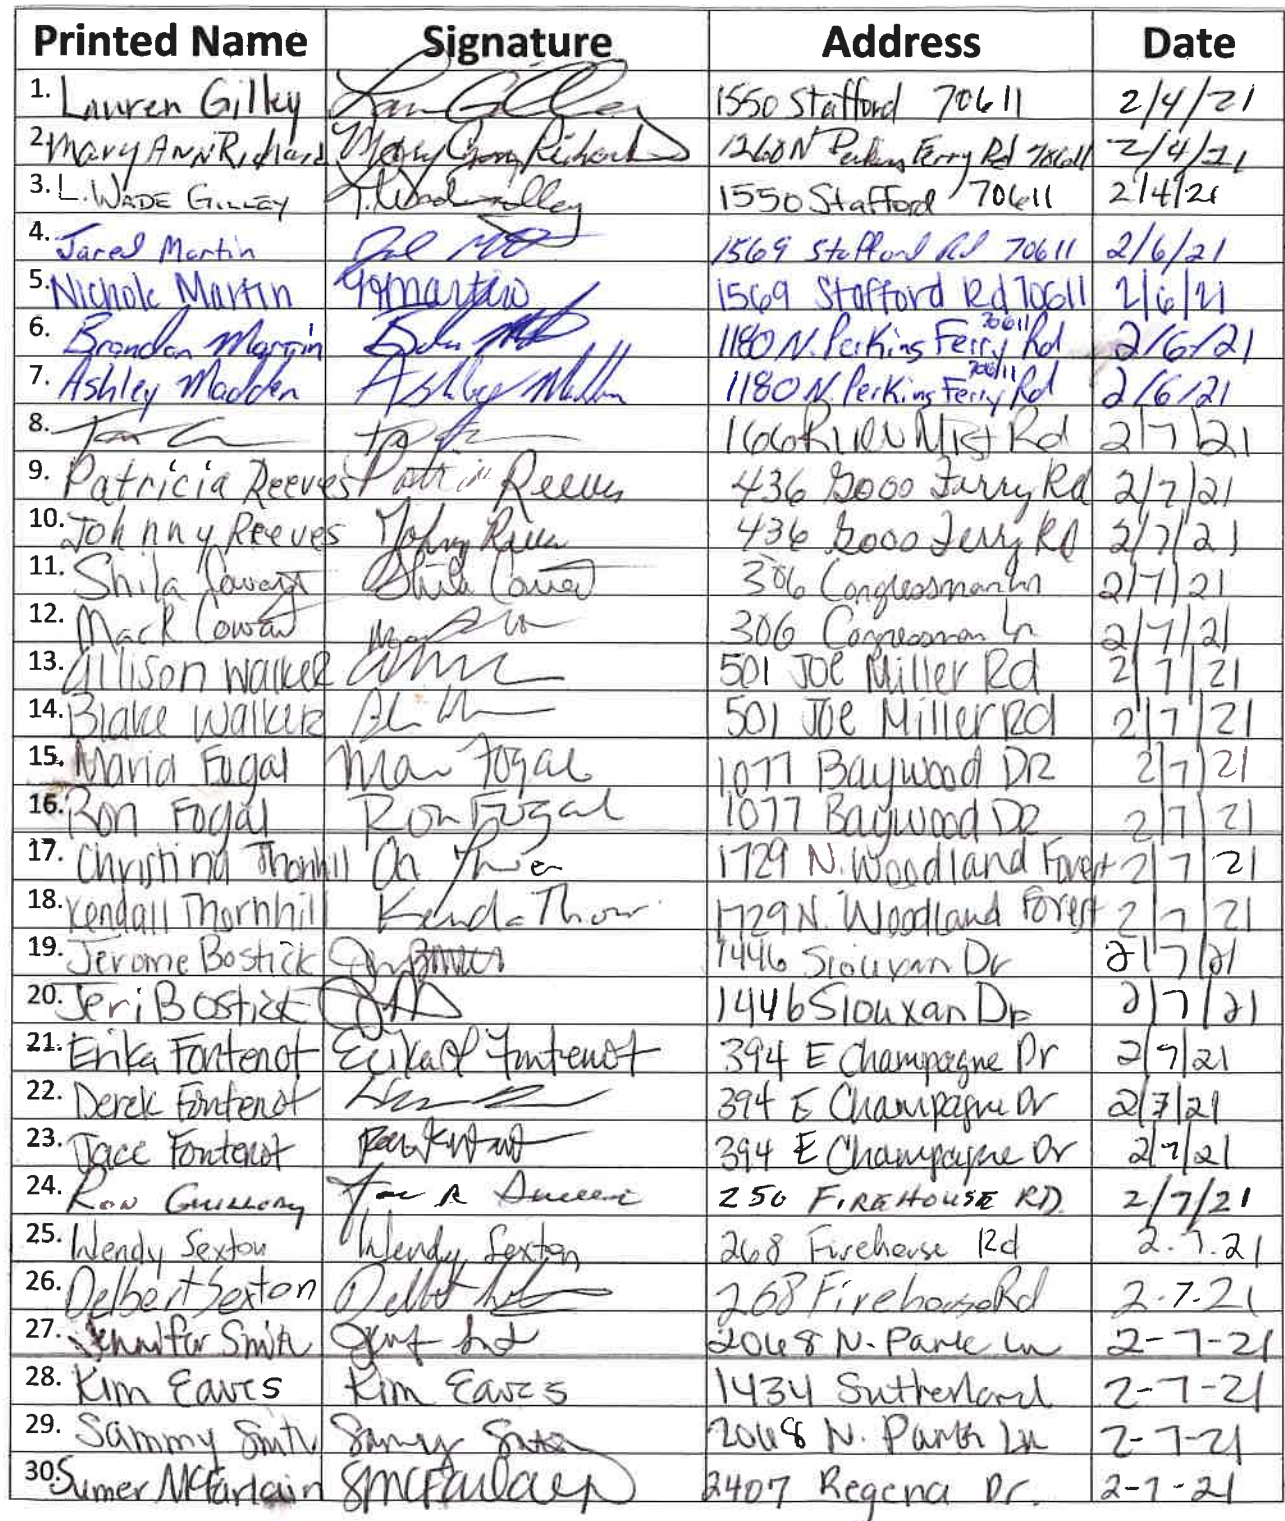 Printed Name Signature Address Date
1. Lauren Gilley 1550 Stafford 70611 2/4/21
2. Mary Ann Richard Mary Ann Richard 1260 N Perkins Ferry Rd 70611 2/4/21
3. L. WADE GILLEY 1550 Stafford 70611 2/4/21
4. Jared Martin 1569 Stafford Rd 70611 2/6/21
5. Nichole Martin Martin 1569 Stafford Rd 70611 2/6/21
6. Brandon 1180 N. Perkins Ferry Rd 70611 2/6/21
7. Ashley Madden Ashley 1180 N. Perkins Ferry Rd 70611 2/6/21
8. Rd 2/7/21
9. Patricia Reeves Patricia Reeves 436 Goos Ferry Rd 2/7/21
10. Johnny Reeves Johnny 436 Goos Ferry Rd 2/7/21
11. Shila Cowart Shila 306 Congressman Ln 2/7/21
12. Mack Cowart 306 Congressman Ln. 2/7/21
13. Allison Walker 501 Joe Miller Rd 2/7/21
14. Blake Walker 501 Joe Miller Rd 2/7/21
15. Maria Fogal Fogal 1077 Baywood DR 2/7/21
16. Ron Fogal Ron Fogal 1077 Baywood DR 2/7/21
17. Christina Thornhill 1729 N. Woodland Forest 2/7/21
18. Kendall Thornhill 1729 N. Woodland Forest 2/7/21
19. Jerome Bostick 1446 Siouxan Dr 2/7/21
20. Jeri Bostick 1446 Siouxan Dr 2/7/21
21. Erika Fontenot Erika Fontenot 394 E Champagne Dr 2/7/21
22. Derek Fontenot 394 E Champagne Dr 2/7/21
23. Jace Fontenot 394 E Champagne Dr 2/7/21
24. Ron Guillory 250 FIREHOUSE RD. 2/7/21
25. Wendy Sexton Wendy Sexton 268 Firehouse Rd 2.7.21
26. Delbert Sexton 268 Firehouse Rd 2.7.21
27. Jennifer Smith 2068 N. Park Ln 2-7-21
28. Kim Eaves Kim Eaves 1434 Sutherland 2-7-21
29. Sammy Smith 2068 N. Park Ln 2-7-21
30. Sumer McFarlain SMcFarlain 2407 Regena Dr. 2-7-21